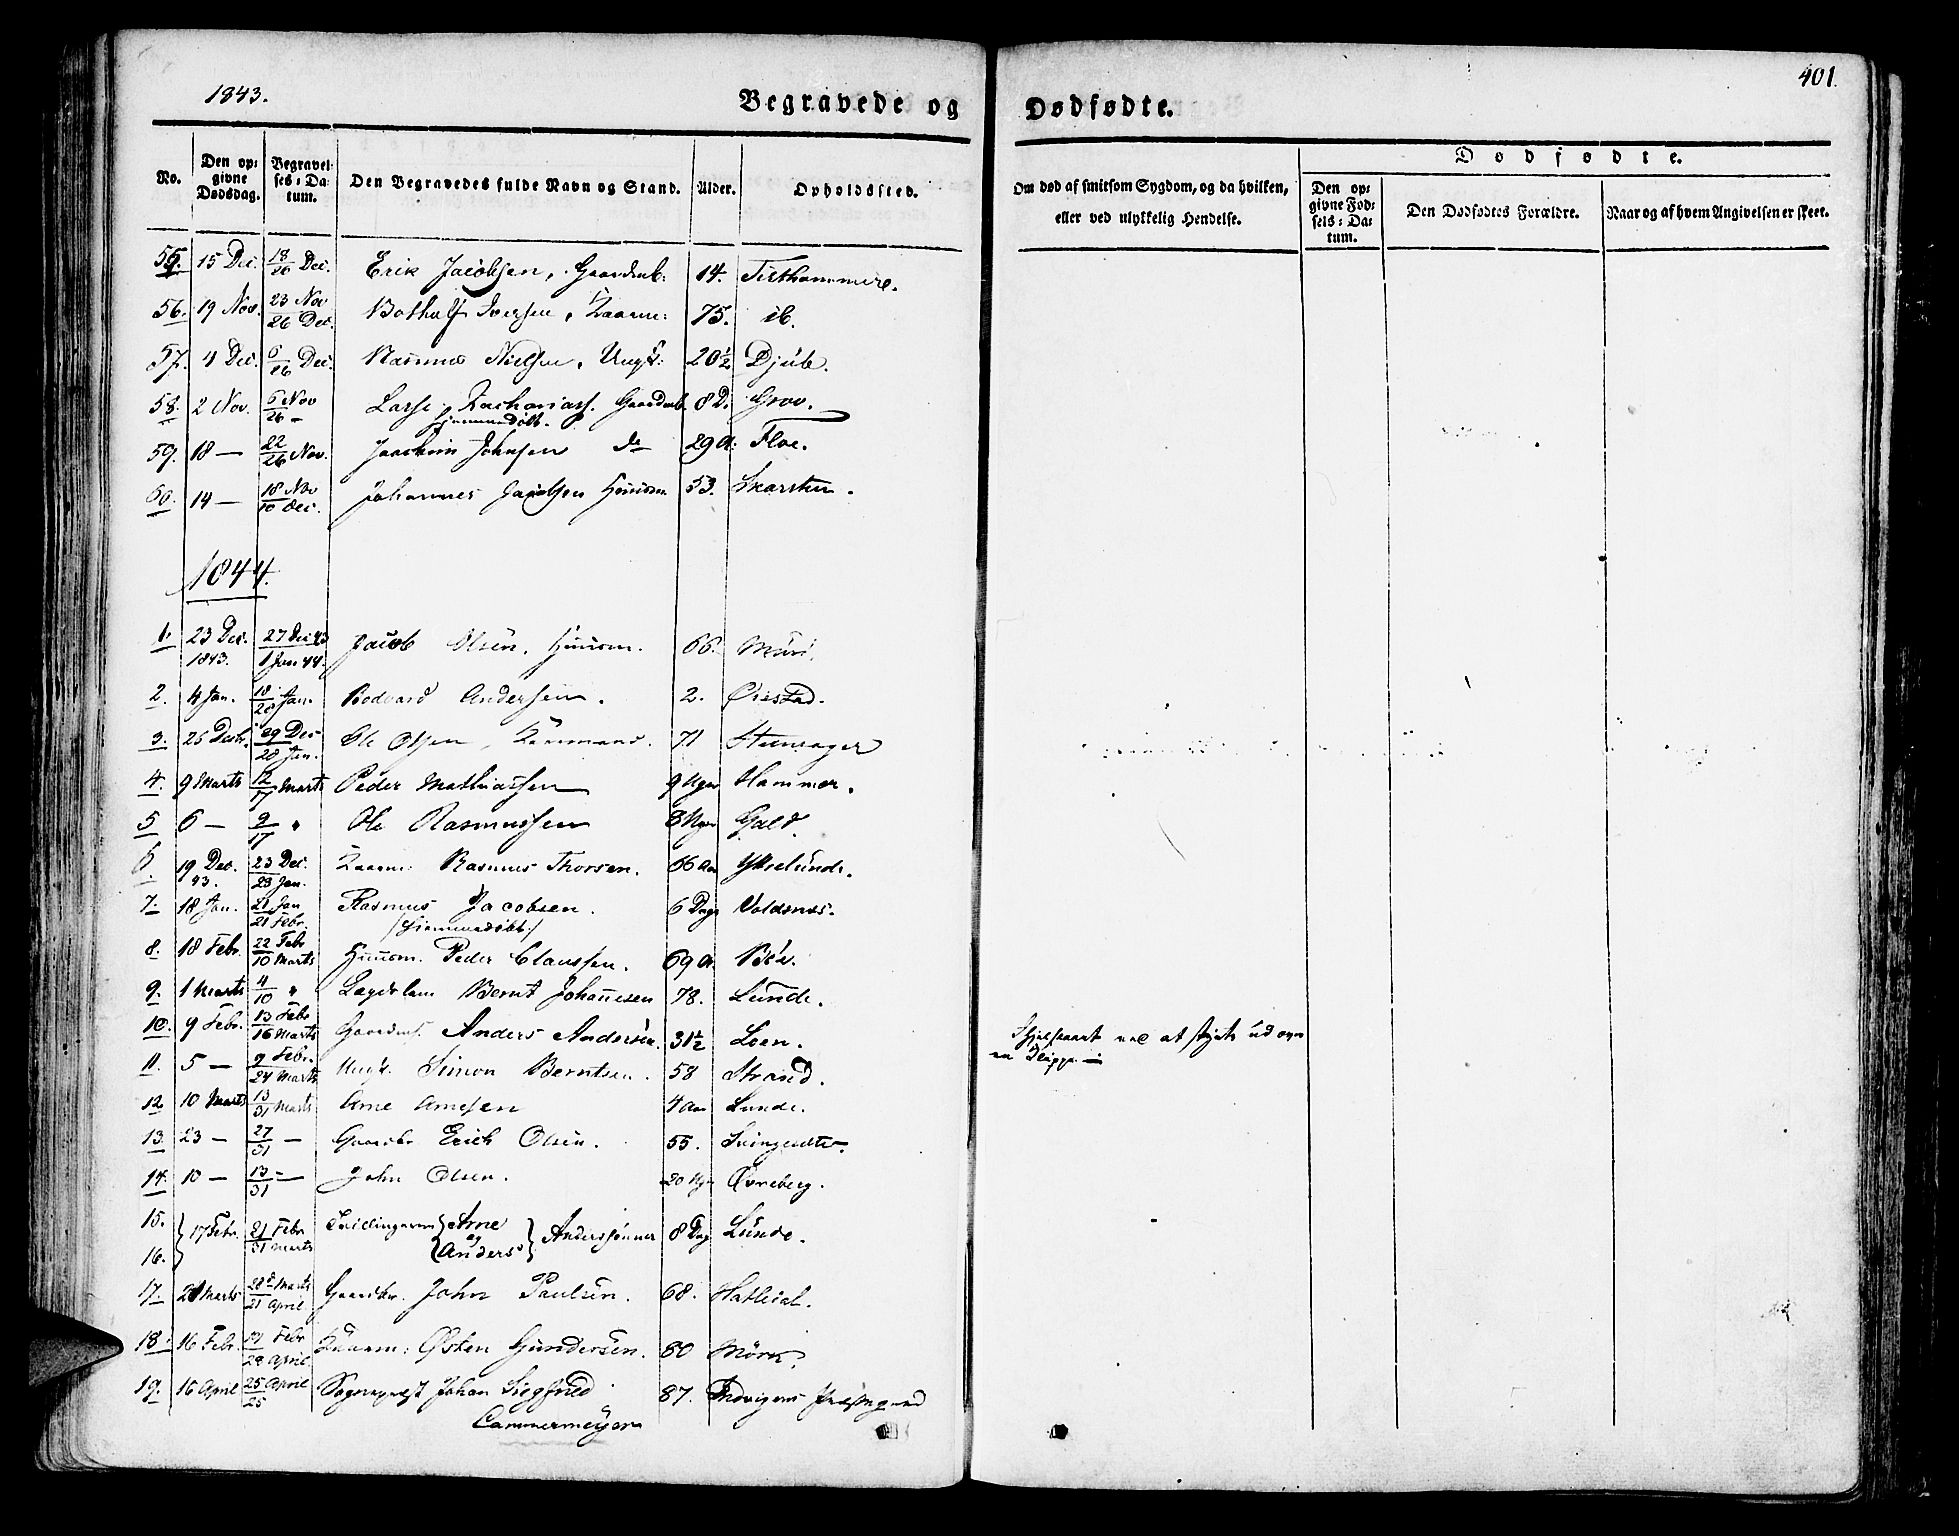 1843.
Begravede og Dødfødte.
401.
No.
Den op=
givne
Dødsdag.
Begravel=
ses=Da=
tum.
Den Begravedes fulde Navn og Stand.
Alder.
Opholdssted.
Om død af smitsom Sygdom, og da hvilken,
eller ved ulykkelig Hendelse.
Dødfødte.
Den op=
givne Fød=
sels=Da=
tum.
Den Dødfødtes Forældre.
Naar og af hvem Angivelsen er skeet.
55. 15 Dec. 18/26 Dec. Erik Jacobsen, Gaardmb. 14. Tisthammere.
56. 19 Nov. 23 Nov/26 Dec. Bothulf Iversen, Kaarm: 75. ib.
57. 4 Dec. 6/26 Dec. Rasmus Nielsen, Ungk: 20½ Djúb.
58. 2 Nov. 6 Nov/26 – Lasse Zachariass. Gaardmb. 8 D. Grov.
Hjemmedøbt.
59. 18 — 22/26 Nov. Joachim Johnsen do 29 A. Floe.
60. 14 — 18 Nov/10 Dec. Johannes Jacobsen Huusm. 53. Skarsten.
1844.
1. 23 Dec. 1843. 27 Dec 43/1 Jan 44. Jacob Olsen, Huusm. 66. Muri.
2. 4 Jan. 18/28 Jan. Bodvard Andersen. 2. Ørestad.
3. 25 Decbr. 29 Dec/28 Jan. Ole Olsen, Kaarmand. 71 Steensager
4. 9 Marts 12/17 Marts Peder Mathiassen 9 Uger Hammer.
5 6 — 9/17 " Ole Rasmussen 8 Uger Gald.
6. 19 Dec. 43. 23 Dec./28 Jan. Kaarm: Rasmus Thorsen. 66 Aar Yttrelunde.
7. 18 Jan. 21 Jan/21 Febr. Rasmus Jacobsen. 6 Dage Voldsnes.
/hiemmedøbt/
8. 18 Febr. 22 Febr/10 Marts Huusm. Peder Claussen. 69 A. Bøe.
9. 1 Marts 4/10 " Lægdslem Bernt Johannesen 78. Lunde.
10. 9 Febr. 13 Febr/16 Marts Gaardm. Anders Andersen. 31½ Loen. Ihjelslaaet ved at styrte ud over
en Klippe. —
11. 5 — 9 Febr./24 Marts Ungk. Simon Berntsen. 58 Strand.
12 10 Marts 13/31 Marts Arne Arnesen 4 Aar Lunde.
13. 23 — 27/31 — Gaardbr. Erich Olsen. 55.
14. 10 — 13/31 — John Olsen. 20 Uger Øvreberg.
15.
16. 17 Febr. 21 Febr/31 Marts Tvillingerne Arne og Anders Anderssønner 8 Dag Lunde.
17. 21 Marts 28d Marts/21 April Gaardbr. John Paulsen. 68. Hatledal.
18. 16 Febr. Febr/28 April Kaarm: Østen Gundersen. 80 Mörk.
19. 16 April 25 April/25 Sognepræst Johan Siegfried 87. Indvigens Præstegaard
Cammermeyer